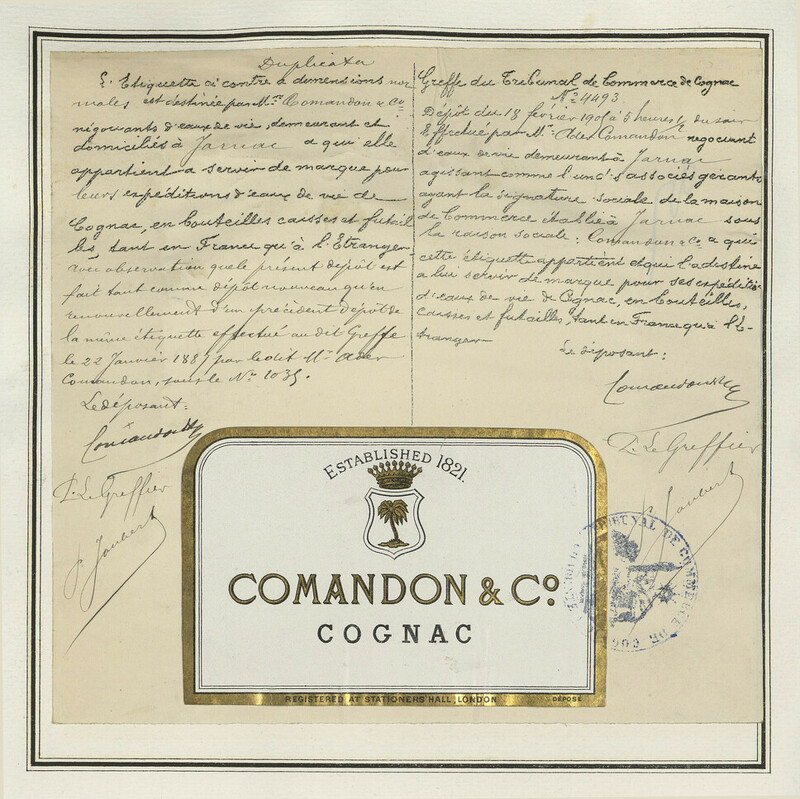 Duplicata
L'Etiquette ci contre a dimensions nor
males est destinée par Mrs Comandon & Co
négociants d'eaux de vie, demeurant et
domiciliés à Jarnac a qui elle
appartient a servir de marque pour
leurs expéditions d'eaux de vie de
Cognac, en bouteilles caisses et futail
les, tant en France qu'à l'Etranger
avec observation que le présent dépôt est
fait tant comme dépôt nouveau qu'en
renouvellement d'un précédent dépôt de
la même étiquette effectué au dit Greffe
le 22 Janvier 188 par le dit Mr Ader
Comandon, sous le No 1035.
Le déposant:
Comandon & Co
P. Le Greffier
P. Joubert
Greffe du Tribunal de Commerce de Cognac
No 4493
Dépôt du 18 février 190 à 5 heures 1/2 du soir
Effectué par Mr Ader Comandon negociant
d'eaux de vie demeurant à Jarnac
agissant comme l'un d's associés gérants
ayant la signature sociale de la maison
de Commerce établie à Jarnac sous
la raison sociale: Comandon & Co a qui
cette étiquette appartient et qui l'a destine
a lui servir de marque pour ses expéditio
d'eaux de vie de Cognac, en bouteilles,
caisses et futailles, tant en France qu'à l'E-
tranger
Le déposant:
Comandon & Co
P. Le Greffier
P. Joubert
ESTABLISHED 1821.
COMANDON & Co.
COGNAC
REGISTERED AT STATIONERS HALL, LONDON
DÉPOSÉ
TRIBUNAL DE COMMERCE DE COGNAC